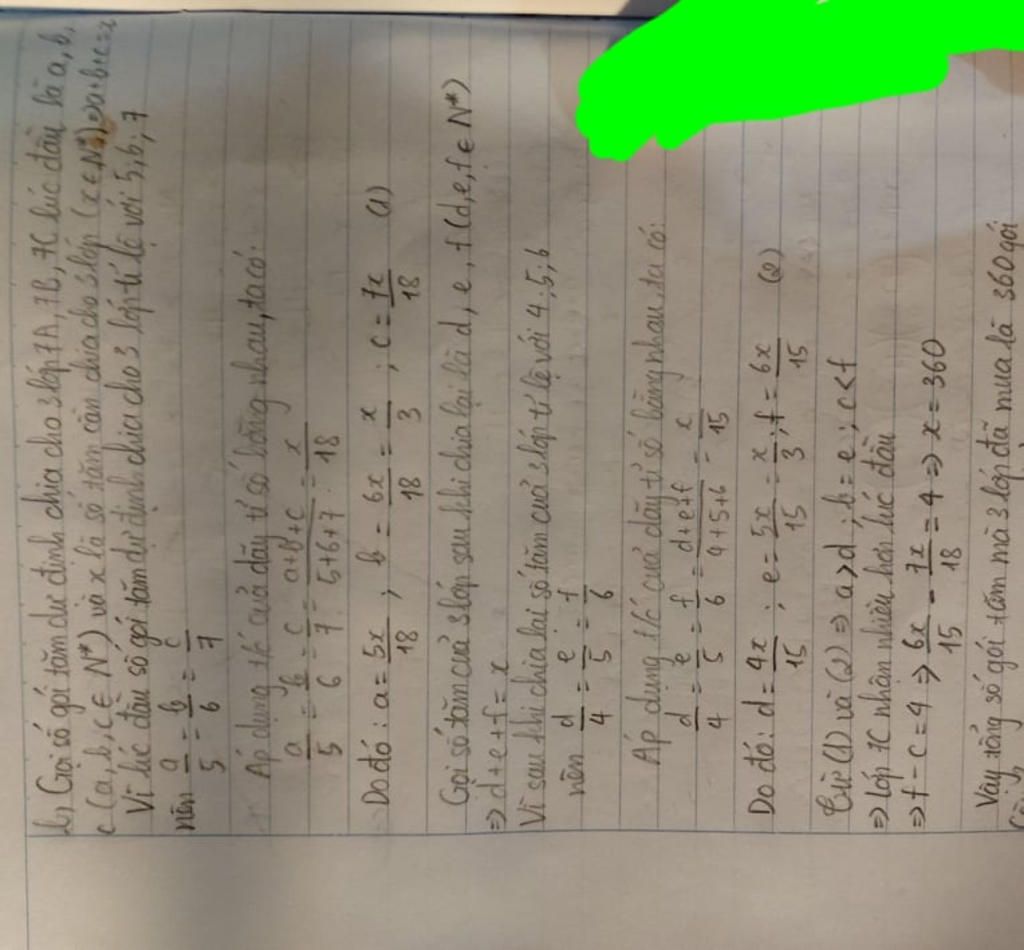 b) Gọi số gói tăm dự định chia cho 3 lớp 7A, 7B, 7C lúc đầu là a, b,
c (a, b, c ∈ N*) và x là số tăm cần chia cho 3 lớp (x ∈ N*) ⇒ a+b+c=x
Vì lúc đầu số gói tăm dự định chia cho 3 lớp tỉ lệ với 5; 6; 7
nên a/5 = b/6 = c/7
Áp dụng t/c của dãy tỉ số bằng nhau, ta có:
a/5 = b/6 = c/7 = (a+b+c)/(5+6+7) = x/18
Do đó: a = 5x/18 ; b = 6x/18 = x/3 ; c = 7x/18 (1)
Gọi số tăm của 3 lớp sau khi chia lại là d, e, f (d, e, f ∈ N*)
⇒ d+e+f = x
Vì sau khi chia lại số tăm của 3 lớp tỉ lệ với 4; 5; 6
nên d/4 = e/5 = f/6
Áp dụng t/c của dãy tỉ số bằng nhau, ta có:
d/4 = e/5 = f/6 = (d+e+f)/(4+5+6) = x/15
Do đó: d = 4x/15 ; e = 5x/15 = x/3 ; f = 6x/15 (2)
Từ (1) và (2) ⇒ a>d ; b=e ; c<f
⇒ lớp 7C nhận nhiều hơn lúc đầu
⇒ f - c = 4 ⇒ 6x/15 - 7x/18 = 4 ⇒ x = 360
Vậy tổng số gói tăm mà 3 lớp đã mua là 360 gói